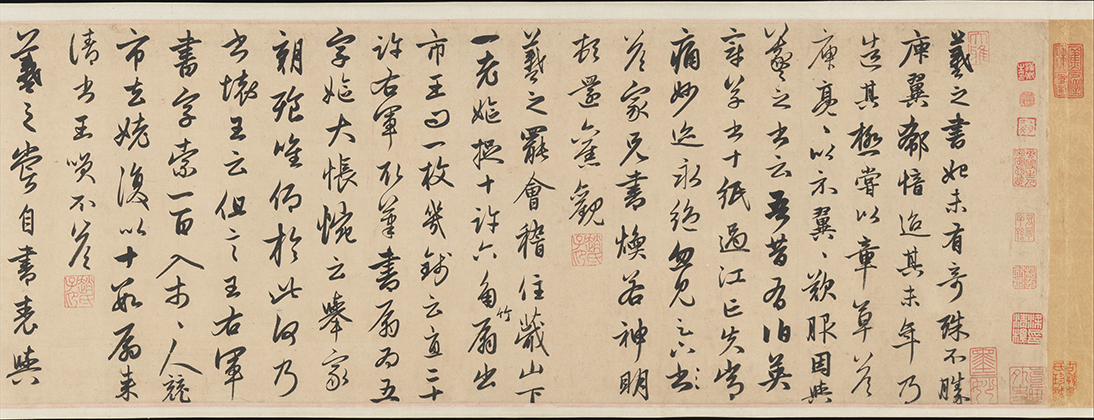 羲之書始未有奇殊不勝
庾翼郗愔迨其末年乃
造其極嘗以章草答
庾亮、以示翼、歎服因與
羲之書云吾昔有伯英
章草書十紙過江亡失常
痛妙迹永絕忽見足下書
答家兄書煥若神明
頓還舊觀
趙氏子昂
羲之罷會稽住蕺山下
一老嫗捉十許六角竹扇出
市王問一枚幾錢云直二十
許右軍取筆書扇為五
字嫗大悵惋云舉家
朝飧唯仰於此何乃
書壞王云但言王右軍
書字索一百入市、人競
市去姥復以十數扇來
請書王笑不答
趙氏子昂
羲之嘗自書表與